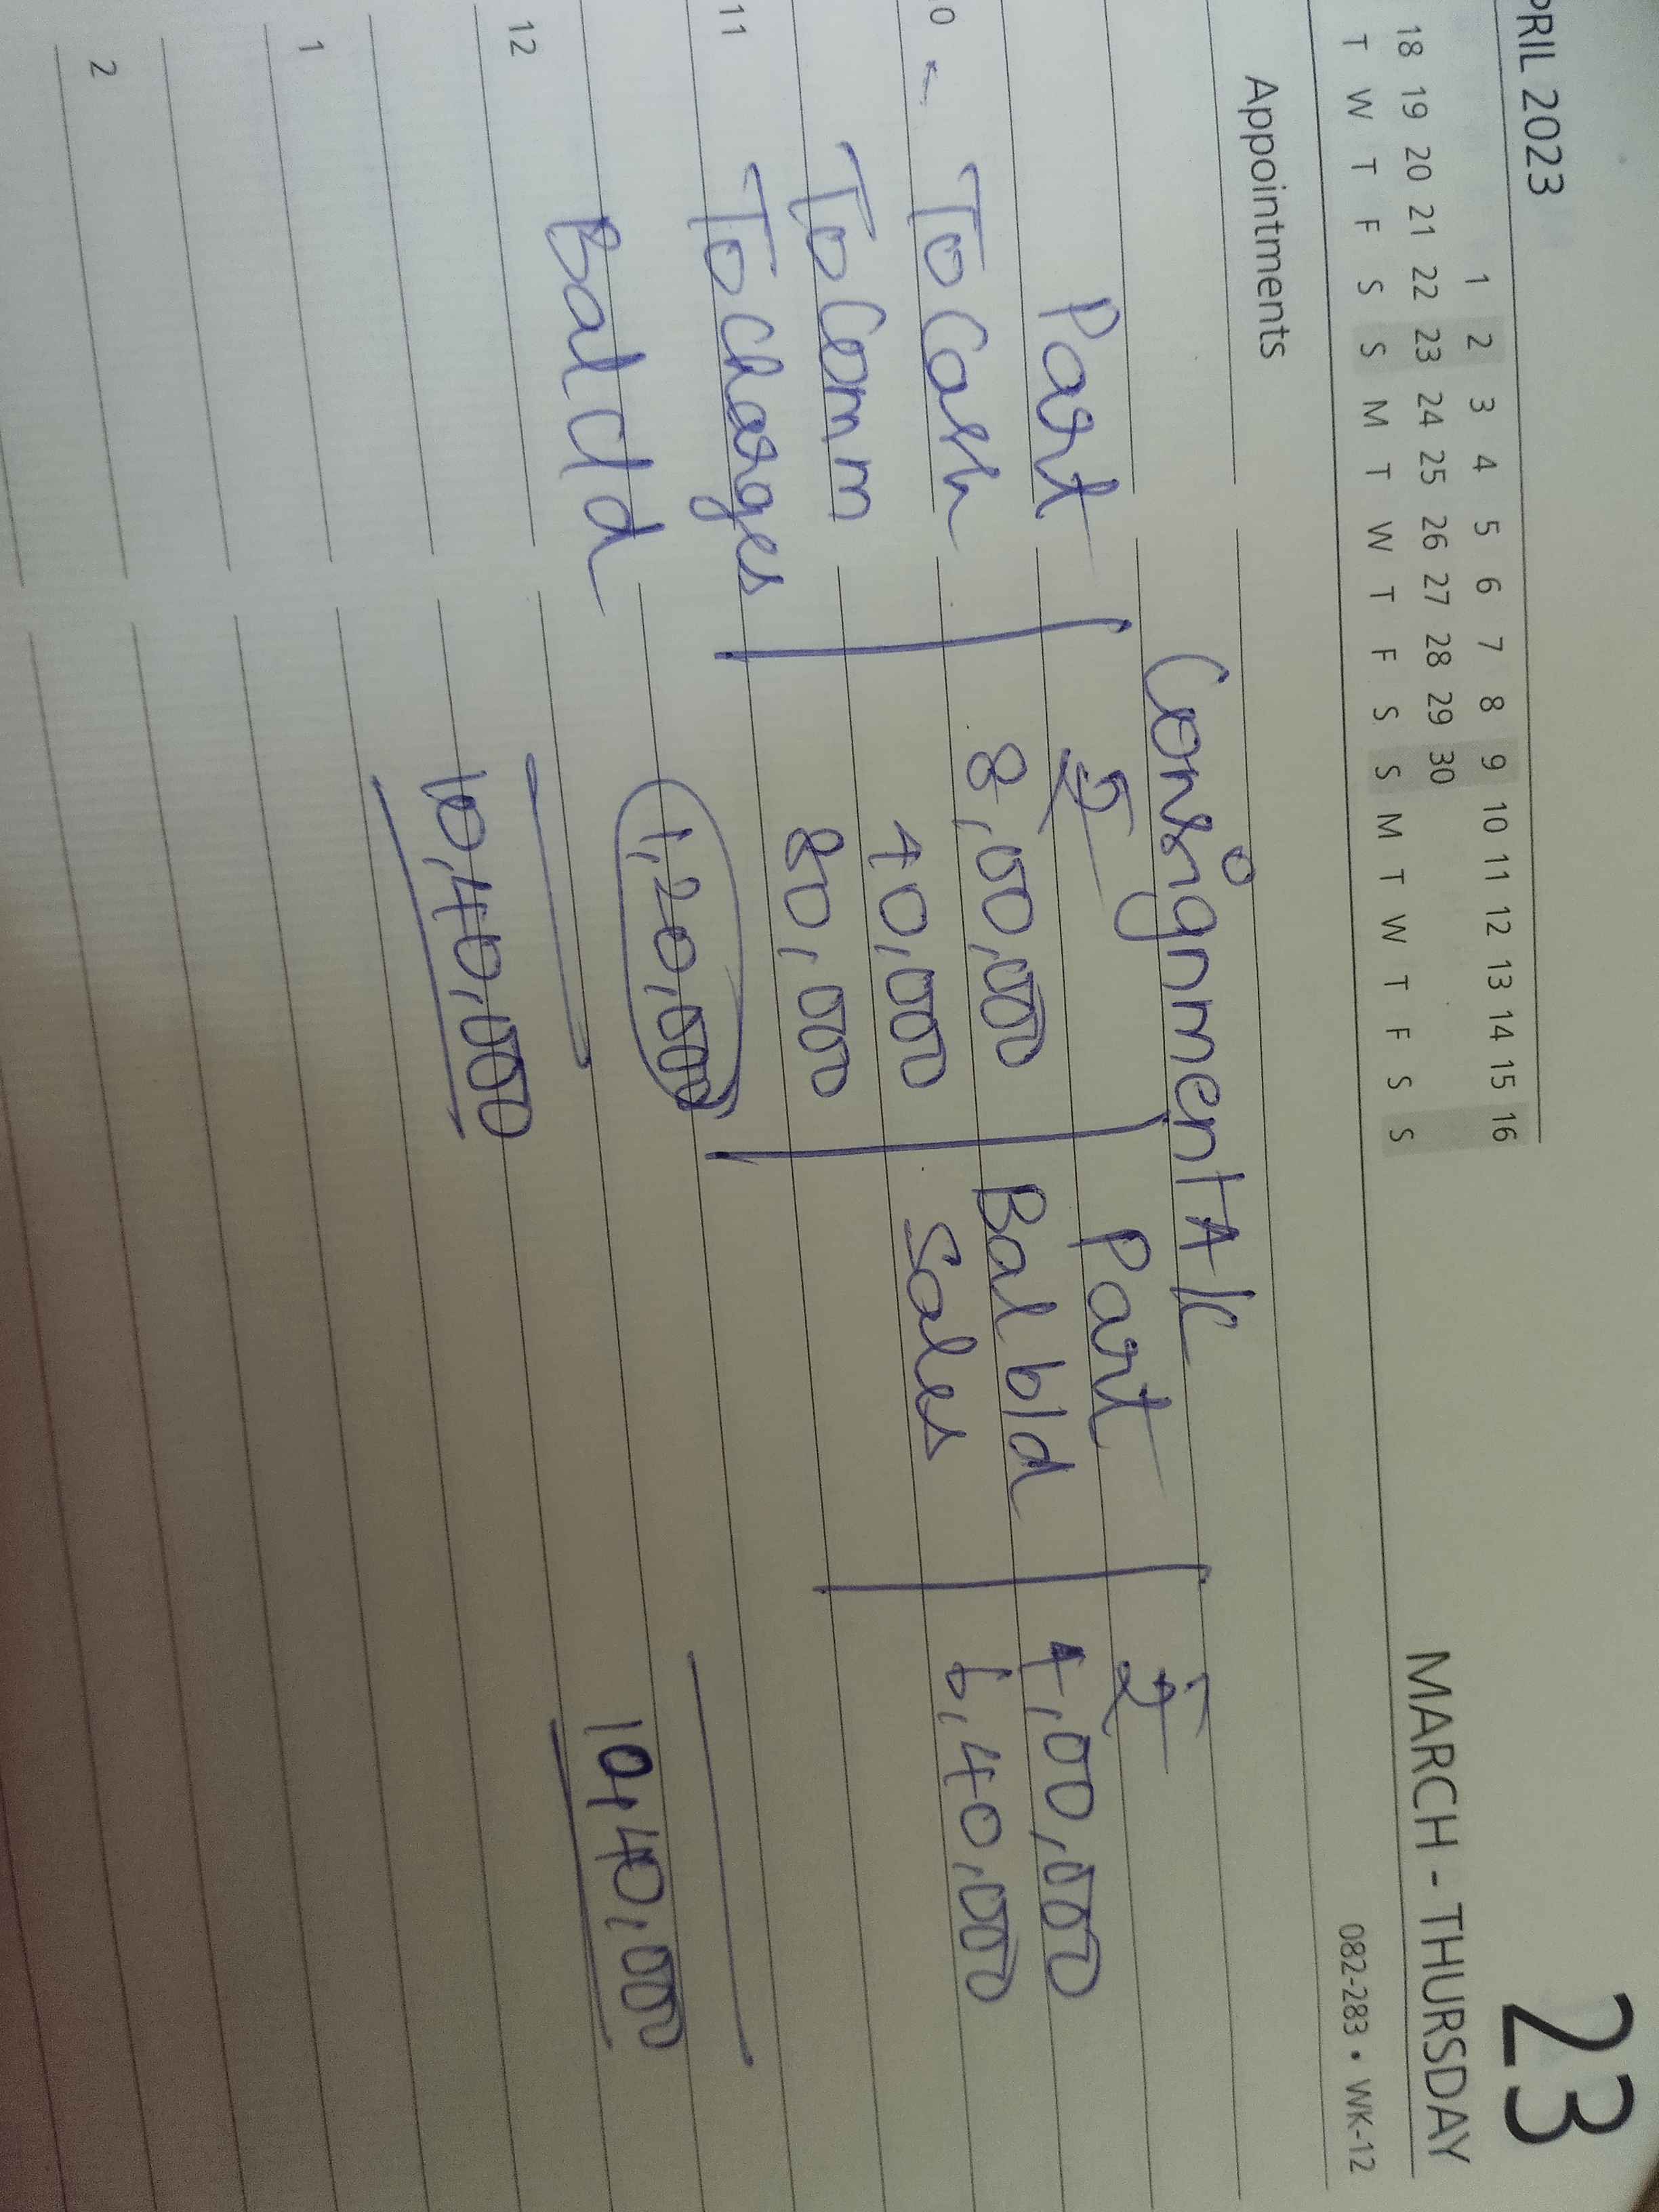 PRIL 2023
23
1 2 3 4 5 6 7 8 9 10 11 12 13 14 15 16
18 19 20 21 22 23 24 25 26 27 28 29 30
T W T F S S M T W T F S S M T W T F S S
MARCH - THURSDAY
082-283 • WK-12
Appointments
Consignment A/c
Part ₹ Part ₹
0 - To Cash 8,00,000 Bal b/d 4,00,000
To Comm 40,000 Sales 6,40,000
11 To Charges 80,000
Bal c/d 1,20,000
12 10,40,000 10,40,000
1
2